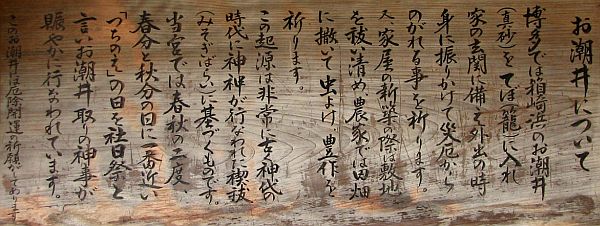 お潮井について
博多では箱崎浜のお潮井
(真砂)をてぼ(籠)に入れ
家の玄関に備え外出の時
身に振りかけて災厄から
のがれる事を祈ります。
又家屋の新築の際は敷地
を祓い清め、農家では田畑
に撒いて虫よけ、豊作を
祈ります。
この起源は非常に古く神代の
時代に神々が行なわれた禊祓
(みそぎはらい)に基づくものです。
当宮では春秋の二度、
春分と秋分の日に一番近い
「つちのえ」の日を社日祭と
言い、お潮井取りの神事が
賑やかに行なわれています。
このお潮井は厄除開運の祈願がしてあります